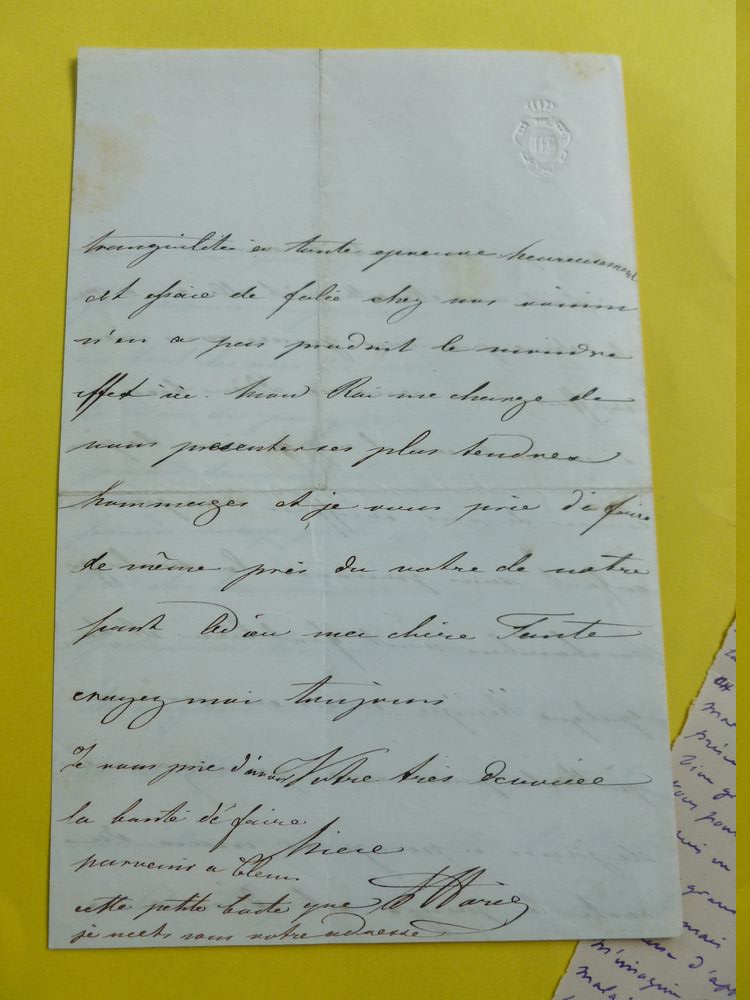 tranquilité a toute epreuve heureusement
cet essaie de folie chez nos voisins
n'en a pas produit le moindre
effet ici. Mon Roi me charge de
vous presenter ses plus tendres
hommages et je vous prie d'e faire
de même près du votre de notre
part Adieu ma chère Tante
croyez moi toujours
Votre très devouée
Niece
Marie
Je vous prie d'avoir
la bonté de faire
parvenir a Clem
cette petite boite que
je mets sous votre adresse